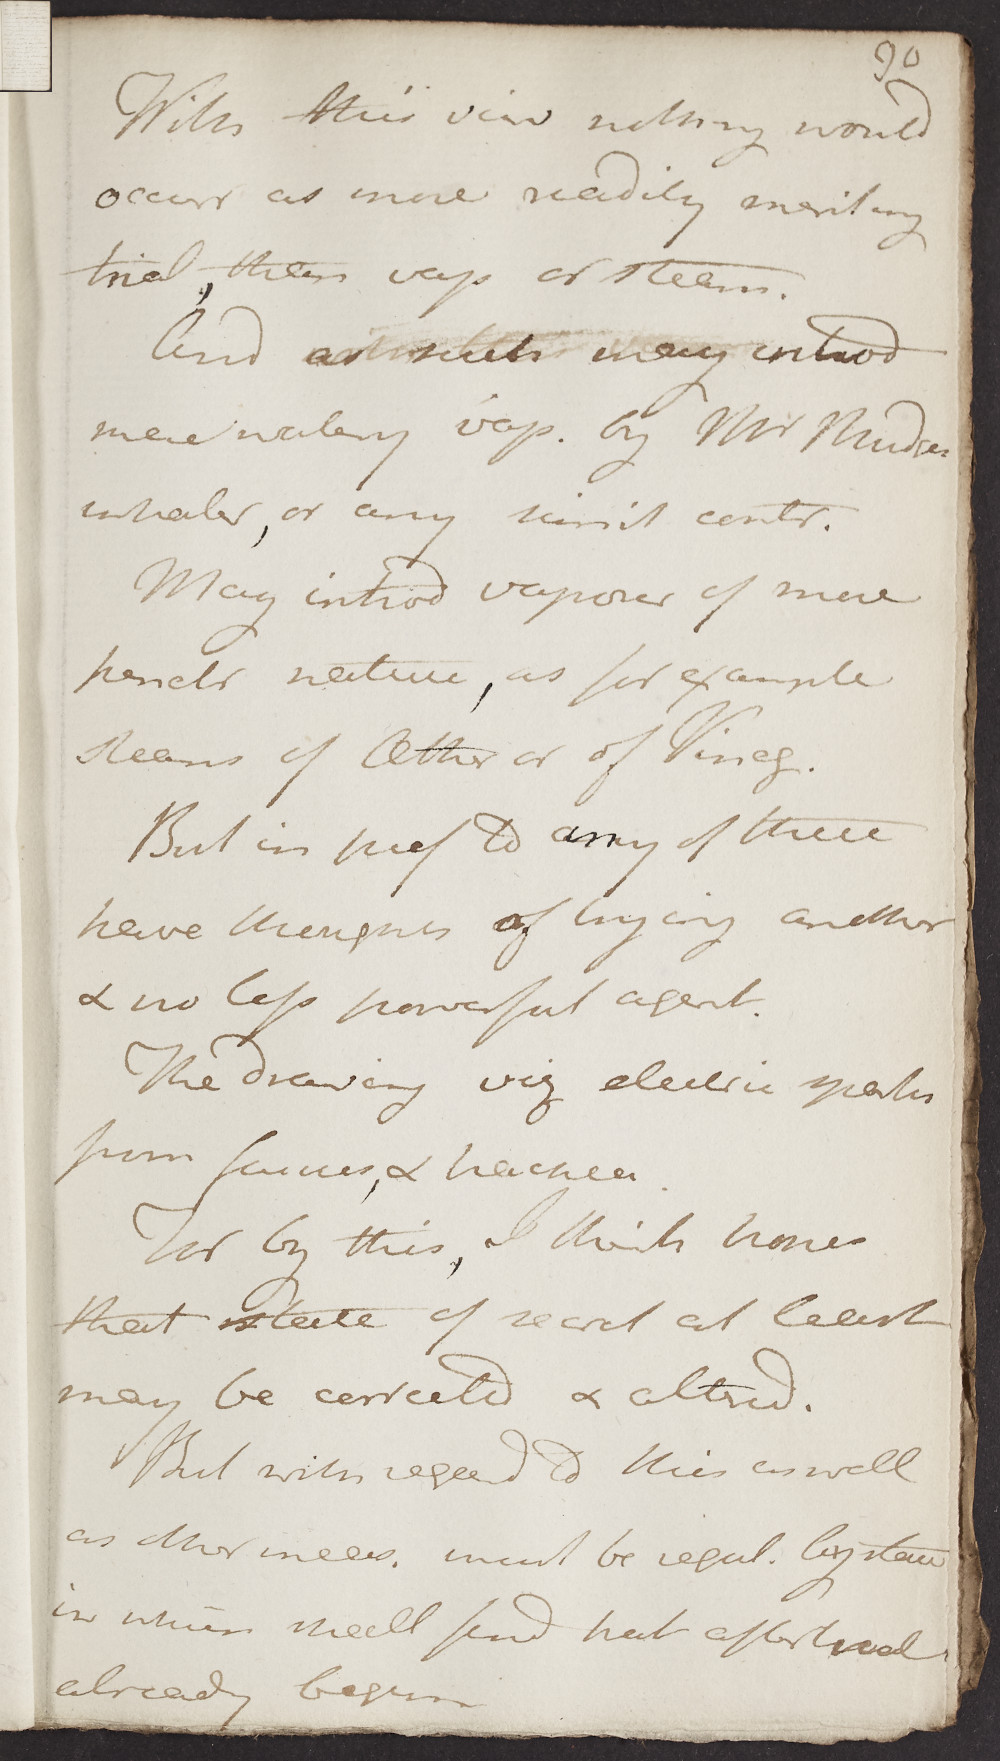 90
With this view nothing would
occurr as more readily meriting
trial, than vap or steam.
And as such may introd
mere watery vap. by Mr Mudges
inhaler, or any simil contr.
May introd vapours of more
penetr nature, as for example
steams of Æther or of Vineg.
But in pref to any of these
have thoughts of trying another
& no less powerful agent.
The drawing viz electric sparks
from fauces, & trachea.
For by this, I think
that state of secret at least
may be corrected & altred.
But with regard to this as well
as other meas. must be regul. by state
in which shall find pat after trial
already begun